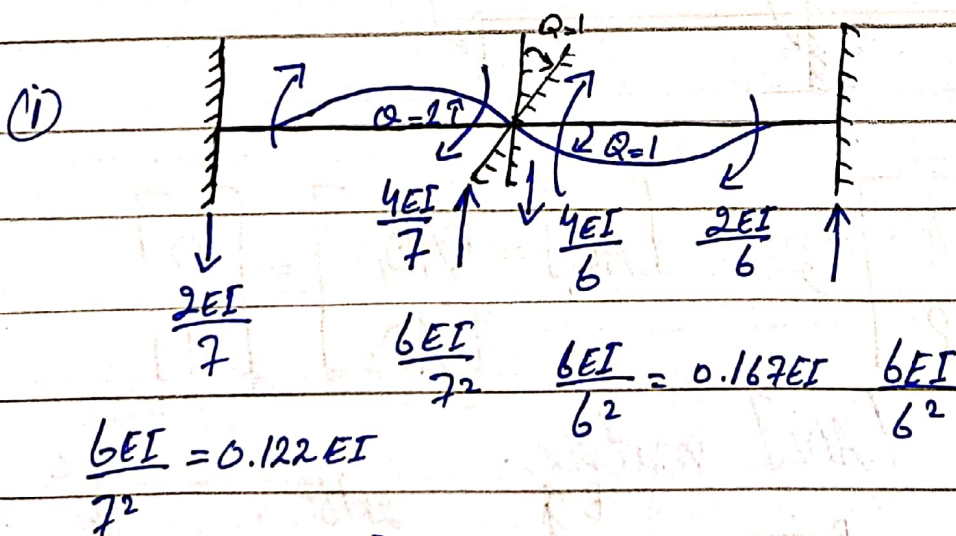 Q=1
(i)
Q=21
Q=1
4EI/7
4EI/6
2EI/6
2EI/7
6EI/7²
6EI/6² = 0.167EI
6EI/6²
6EI/7² = 0.122EI